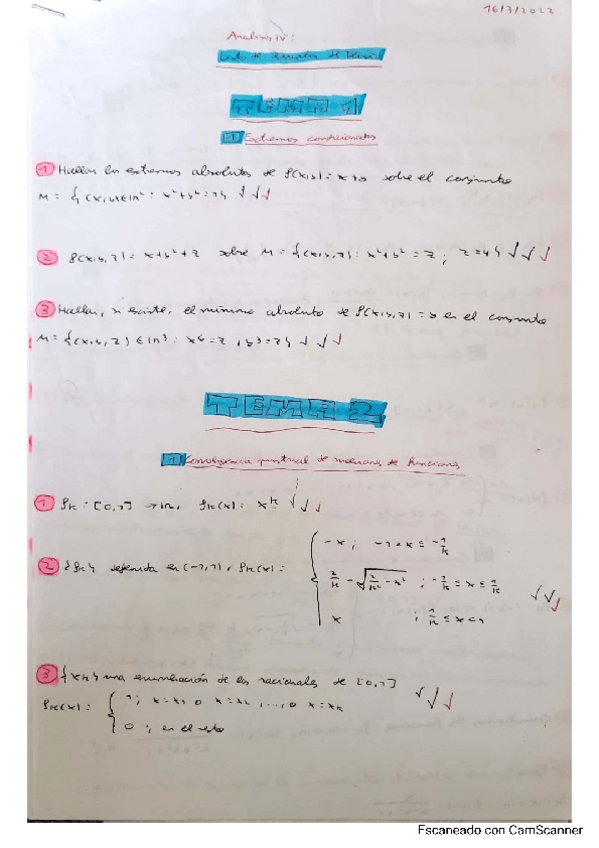 16/3/2022
Analisis IV:
TEMA 1
1 Extremos condicionados
1 Hallar los extremos absolutos de f(x,y)=x+y sobre el conjunto
M = {(x,y)∈ℝ²: x²+y²=1} √√√
2 f(x,y,z)=x+y²+z sobre M={(x,y,z): x²+y²=z; z=4} √√√
3 Hallar, si existe, el mínimo absoluto de f(x,y,z)=y en el conjunto
M={(x,y,z)∈ℝ³: } √√√
TEMA 2
1 Convergencia puntual de sucesiones de funciones
1 fk: [0,1] → ℝ, fk(x)= x^k √√√
2 {fk} definida en (-1,1), fk(x)= { -x; -1<x≤-1/k
2/k - √(2/k² - x²) ; -1/k≤x≤1/k √√√
x ; 1/k≤x<1
3 {xk} una enumeración de los racionales de [0,1]
fk(x)= { 1; x=x1 o x=x2 ,..., o x=xk √√√
0; en el resto
Escaneado con CamScanner